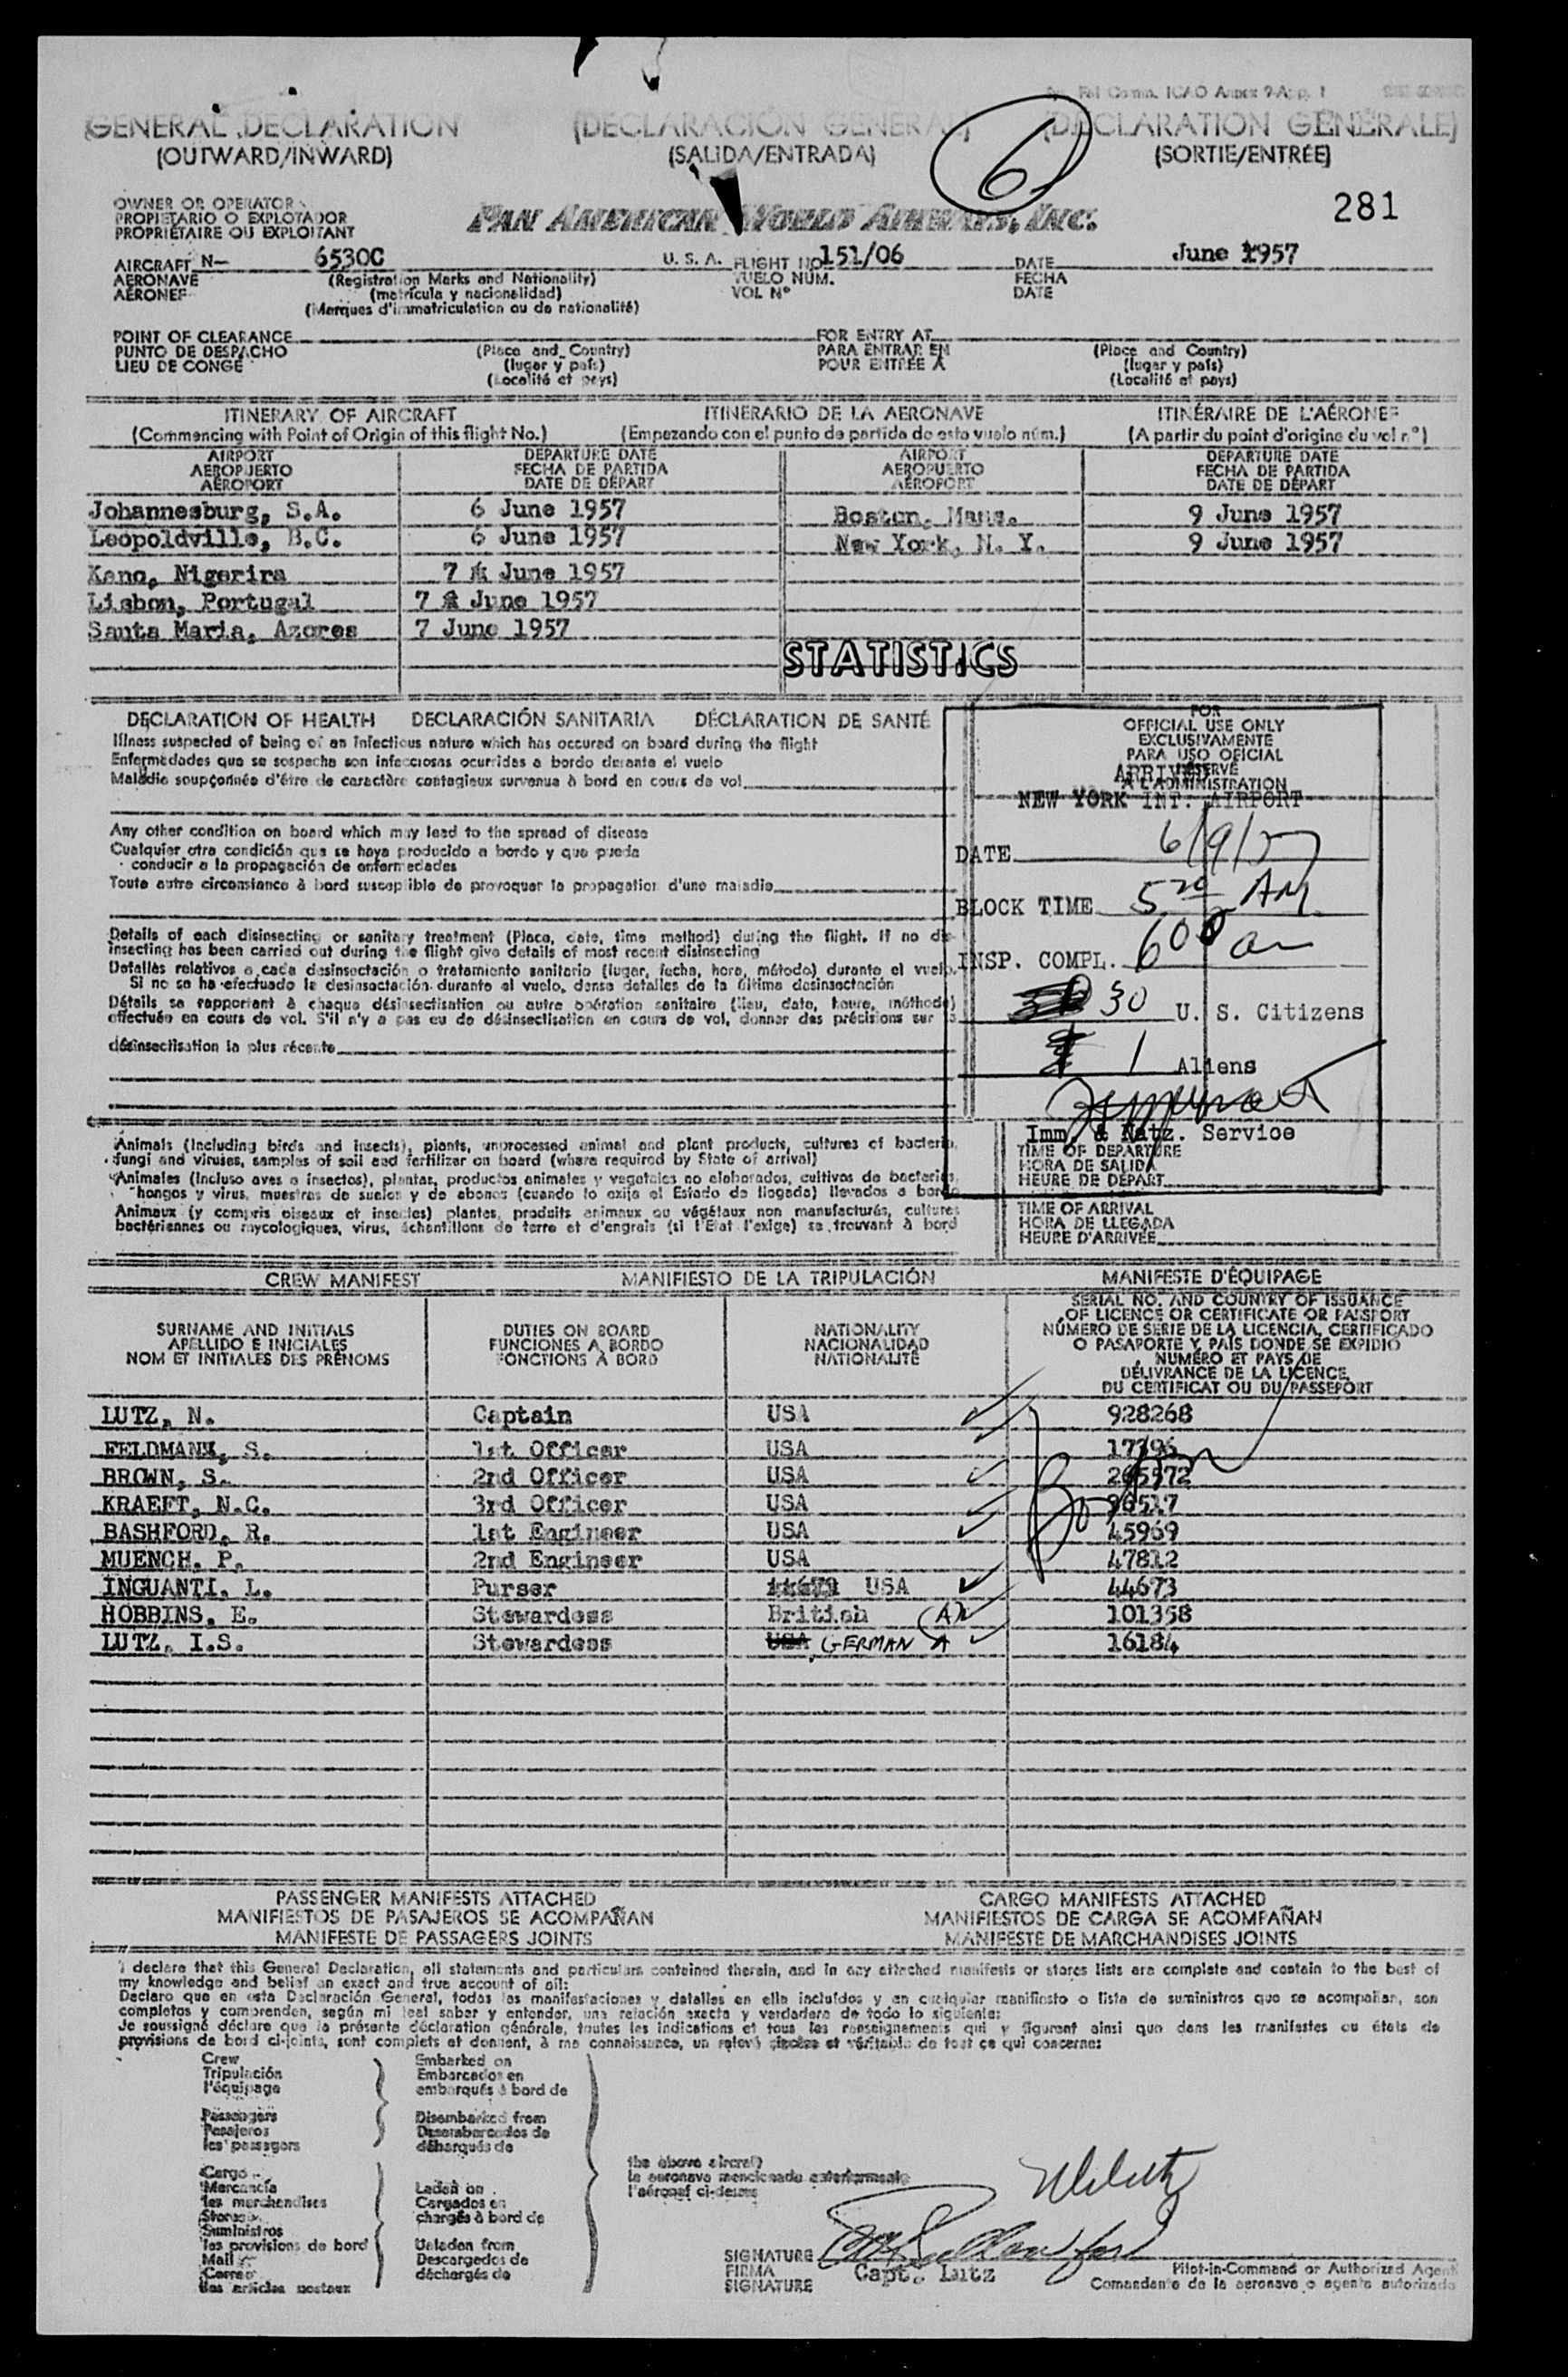 Annex 9-App. 1
GENERAL DECLARATION (DECLARACIÓN GENERAL) (DÉCLARATION GÉNÉRALE)
(OUTWARD/INWARD) (SALIDA/ENTRADA) (SORTIE/ENTRÉE)
6
281
OWNER OR OPERATOR
PROPIETARIO O EXPLOTADOR
PROPRIÉTAIRE OU EXPLOITANT
PAN AMERICAN WORLD AIRWAYS, INC.
AIRCRAFT N— 6530C U. S. A. FLIGHT NO 151/06 DATE June 1957
AERONAVE (Registration Marks and Nationality) VUELO NÚM. FECHA
AÉRONEF (matrícula y nacionalidad) VOL Nº DATE
(Marques d'immatriculation ou de nationalité)
POINT OF CLEARANCE FOR ENTRY AT
PUNTO DE DESPACHO (Place and Country) PARA ENTRAR EN (Place and Country)
LIEU DE CONGÉ (lugar y país) POUR ENTRÉE À (lugar y país)
(Localité et pays) (Localité et pays)
ITINERARY OF AIRCRAFT ITINERARIO DE LA AERONAVE ITINÉRAIRE DE L'AÉRONEF
(Commencing with Point of Origin of this flight No.) (Empezando con el punto de partida de este vuelo núm.) (A partir du point d'origine du vol nº)
AIRPORT DEPARTURE DATE AIRPORT DEPARTURE DATE
AEROPUERTO FECHA DE PARTIDA AEROPUERTO FECHA DE PARTIDA
AÉROPORT DATE DE DÉPART AÉROPORT DATE DE DÉPART
Johannesburg, S.A. 6 June 1957 Boston, Mass. 9 June 1957
Leopoldville, B.C. 6 June 1957 New York, N. Y. 9 June 1957
Kano, Nigerira 7 June 1957
Lisbon, Portugal 7 June 1957
Santa Maria, Azores 7 June 1957
STATISTICS
DECLARATION OF HEALTH DECLARACIÓN SANITARIA DÉCLARATION DE SANTÉ
Illness suspected of being of an infectious nature which has occured on board during the flight
Enfermedades que se sospecha son infecciosas ocurridas a bordo durante el vuelo
Maladie soupçonnée d'être de caractère contagieux survenue à bord en cours de vol
Any other condition on board which may lead to the spread of disease
Cualquier otra condición que se haya producido a bordo y que pueda
conducir a la propagación de enfermedades
Toute autre circonstance à bord susceptible de provoquer la propagation d'une maladie
Details of each disinsecting or sanitary treatment (Place, date, time method) during the flight. If no dis-
insecting has been carried out during the flight give details of most recent disinsecting
Detalles relativos a cada desinsectación o tratamiento sanitario (lugar, fecha, hora, método) durante el vuelo.
Si no se ha efectuado la desinsectación durante el vuelo, dense detalles de la última desinsectación
Détails se rapportant à chaque désinsectisation ou autre opération sanitaire (lieu, date, heure, méthode)
effectuée en cours de vol. S'il n'y a pas eu de désinsectisation en cours de vol, donner des précisions sur la
désinsectisation la plus récente
FOR
OFFICIAL USE ONLY
EXCLUSIVAMENTE
PARA USO OFICIAL
RÉSERVÉ
À L'ADMINISTRATION
ARRIVED
NEW YORK INT. AIRPORT
DATE 6/9/57
BLOCK TIME 5 20 AM
INSP. COMPL. 600 am
30 U. S. Citizens
1 Aliens
Imm. & Natz. Service
Animals (including birds and insects), plants, unprocessed animal and plant products, cultures of bacteria,
fungi and viruses, samples of soil and fertilizer on board (where required by State of arrival)
Animales (incluso aves e insectos), plantas, productos animales y vegetales no elaborados, cultivos de bacterias,
hongos y virus, muestras de suelos y de abonos (cuando lo exija el Estado de llegada) llevados a bordo
Animaux (y compris oiseaux et insectes) plantes, produits animaux ou végétaux non manufacturés, cultures
bactériennes ou mycologiques, virus, échantillons de terre et d'engrais (si l'Etat l'exige) se trouvant à bord
TIME OF DEPARTURE
HORA DE SALIDA
HEURE DE DÉPART
TIME OF ARRIVAL
HORA DE LLEGADA
HEURE D'ARRIVÉE
CREW MANIFEST MANIFIESTO DE LA TRIPULACIÓN MANIFESTE D'ÉQUIPAGE
SURNAME AND INITIALS
APELLIDO E INICIALES
NOM ET INITIALES DES PRÉNOMS
DUTIES ON BOARD
FUNCIONES A BORDO
FONCTIONS À BORD
NATIONALITY
NACIONALIDAD
NATIONALITÉ
SERIAL NO. AND COUNTRY OF ISSUANCE
OF LICENCE OR CERTIFICATE OR PASSPORT
NÚMERO DE SERIE DE LA LICENCIA, CERTIFICADO
O PASAPORTE Y PAÍS DONDE SE EXPIDIÓ
NUMÉRO ET PAYS DE
DÉLIVRANCE DE LA LICENCE,
DU CERTIFICAT OU DU PASSEPORT
LUTZ, N. Captain USA 928268
FELDMANN, S. 1st Officer USA 17396
BROWN, S. 2nd Officer USA 265572
KRAEFT, N.C. 3rd Officer USA 96517
BASHFORD, R. 1st Engineer USA 45969
MUENCH. P. 2nd Engineer USA 47812
INGUANTI. L. Purser USA 44673
HOBBINS, E. Stewardess British 101358
LUTZ, I.S. Stewardess USA GERMAN A 16184
PASSENGER MANIFESTS ATTACHED CARGO MANIFESTS ATTACHED
MANIFIESTOS DE PASAJEROS SE ACOMPAÑAN MANIFIESTOS DE CARGA SE ACOMPAÑAN
MANIFESTE DE PASSAGERS JOINTS MANIFESTE DE MARCHANDISES JOINTS
I declare that this General Declaration, all statements and particulars contained therein, and in any attached manifests or stores lists are complete and contain to the best of
my knowledge and belief an exact and true account of all:
Declaro que en esta Declaración General, todas las manifestaciones y detalles en ella incluídos y en cualquier manifiesto o lista de suministros que se acompañan, son
completos y comprenden, según mi leal saber y entender, una relación exacta y verdadera de todo lo siguiente:
Je soussigné déclare que la présente déclaration générale, toutes les indications et tous les renseignements qui y figurent ainsi que dans les manifestes ou états de
provisions de bord ci-joints, sont complets et donnent, à ma connaissance, un relevé sincère et véritable de tout ce qui concerne:
Crew Embarked on
Tripulación Embarcados en
l'équipage embarqués à bord de
Passengers Disembarked from
Pasajeros Desembarcados de
les passagers débarqués de
Cargo
Mercancía Laden on
les marchandises Cargados en
Stores chargés à bord de
Suministros
les provisions de bord Unladen from
Mail Descargados de
Correo déchargés de
les articles postaux
the above aircraft
la aeronave mencionada anteriormente
l'aéronef ci-dessus
SIGNATURE
FIRMA Capt. Lutz Pilot-in-Command or Authorized Agent
SIGNATURE Comandante de la aeronave o agente autorizado